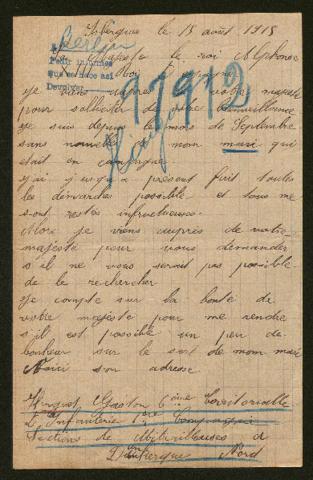 Isbergues le 15 août 1915
Berlin
Pedir informes
que se hace así
Devolver
A sa Majesté le roi Alphonse
17912
je viens auprès de votre majesté
pour solliciter de votre bienveillance
je suis depuis le mois de Septembre
sans nouvelle mon mari qui
était en campagne
j'ai jusqu'a présent fait toutes
les démarches possible et tous me
sont restés infructueuses.
Alors je viens auprès de votre
majesté pour vous demander
s'il ne vous serait pas possible
de le rechercher
Je compte sur la bonté de
votre majesté pour me rendre
s'il est possible un peu de
bonheur sur le sort de mon mari
Voici son adresse
Gaston 6ème territorialle
d'Infanterie 1ère Compagnie
Sections de Mitrailleuses à
Dunkerque Nord